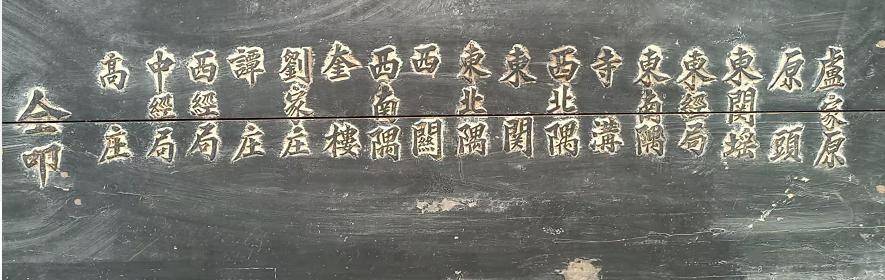 盧家原
原頭
東関瑶
東經局
東南隅
寺溝
西北隅
東関
東北隅
西關
西南隅
奎樓
劉家庄
譚庄
西經局
中經局
高庄
仝叩